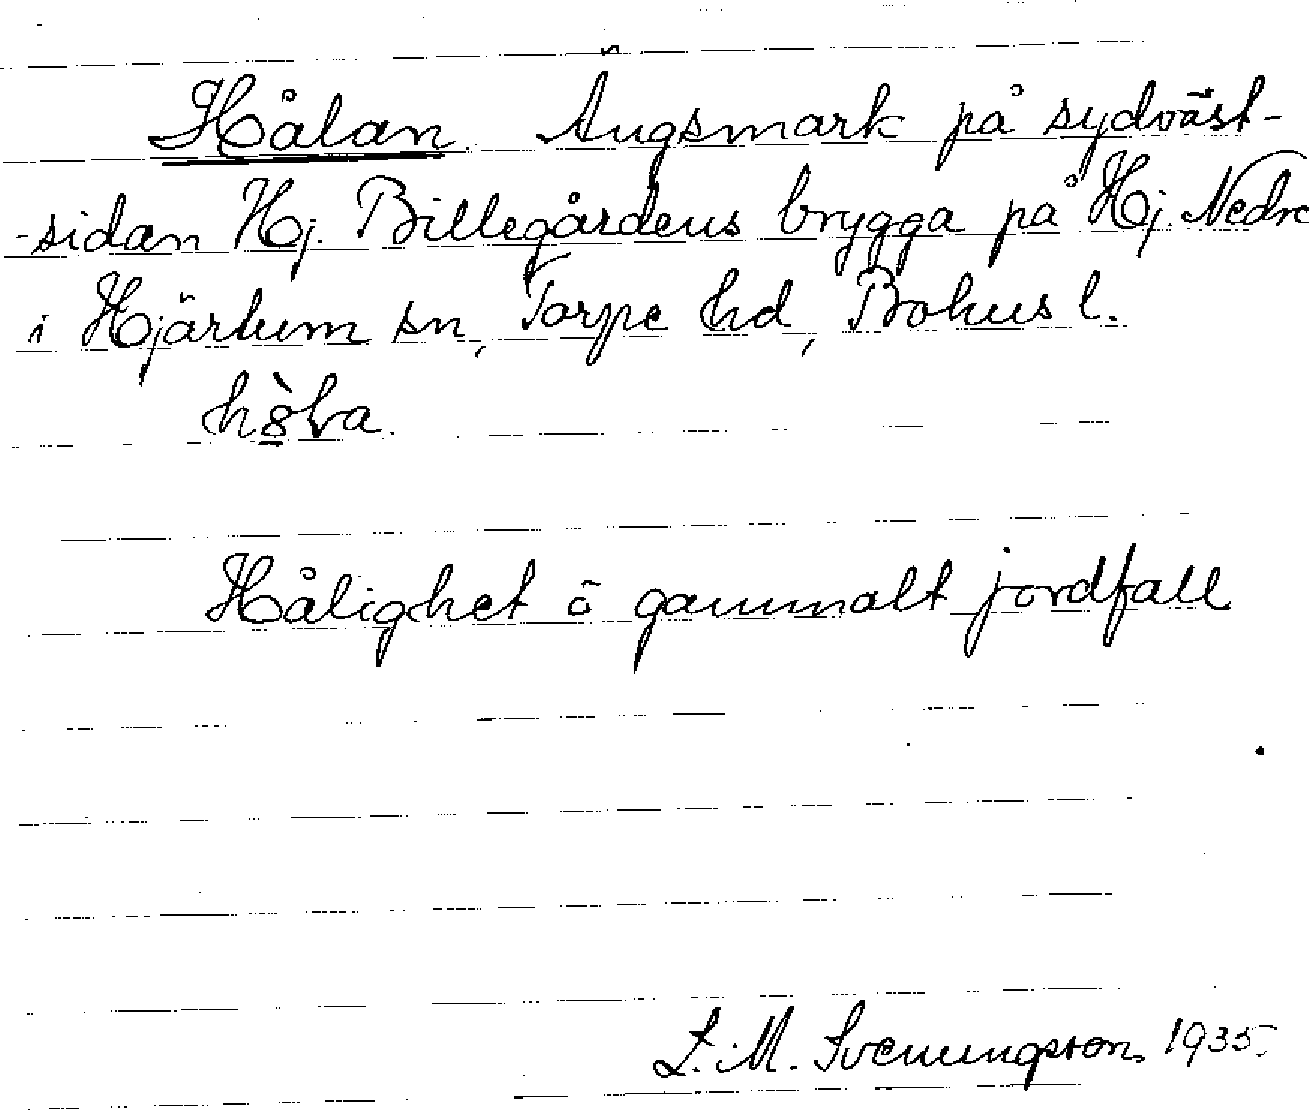 Hålan. Ängsmark på sydväst-
-sidan Hj. Billegårdens brygga på Hj. Nedre
i Hjärtum sn, Torpe hd, Bohus l.
Hålighet o gammalt jordfall
L. M. Svenungsson. 1935.